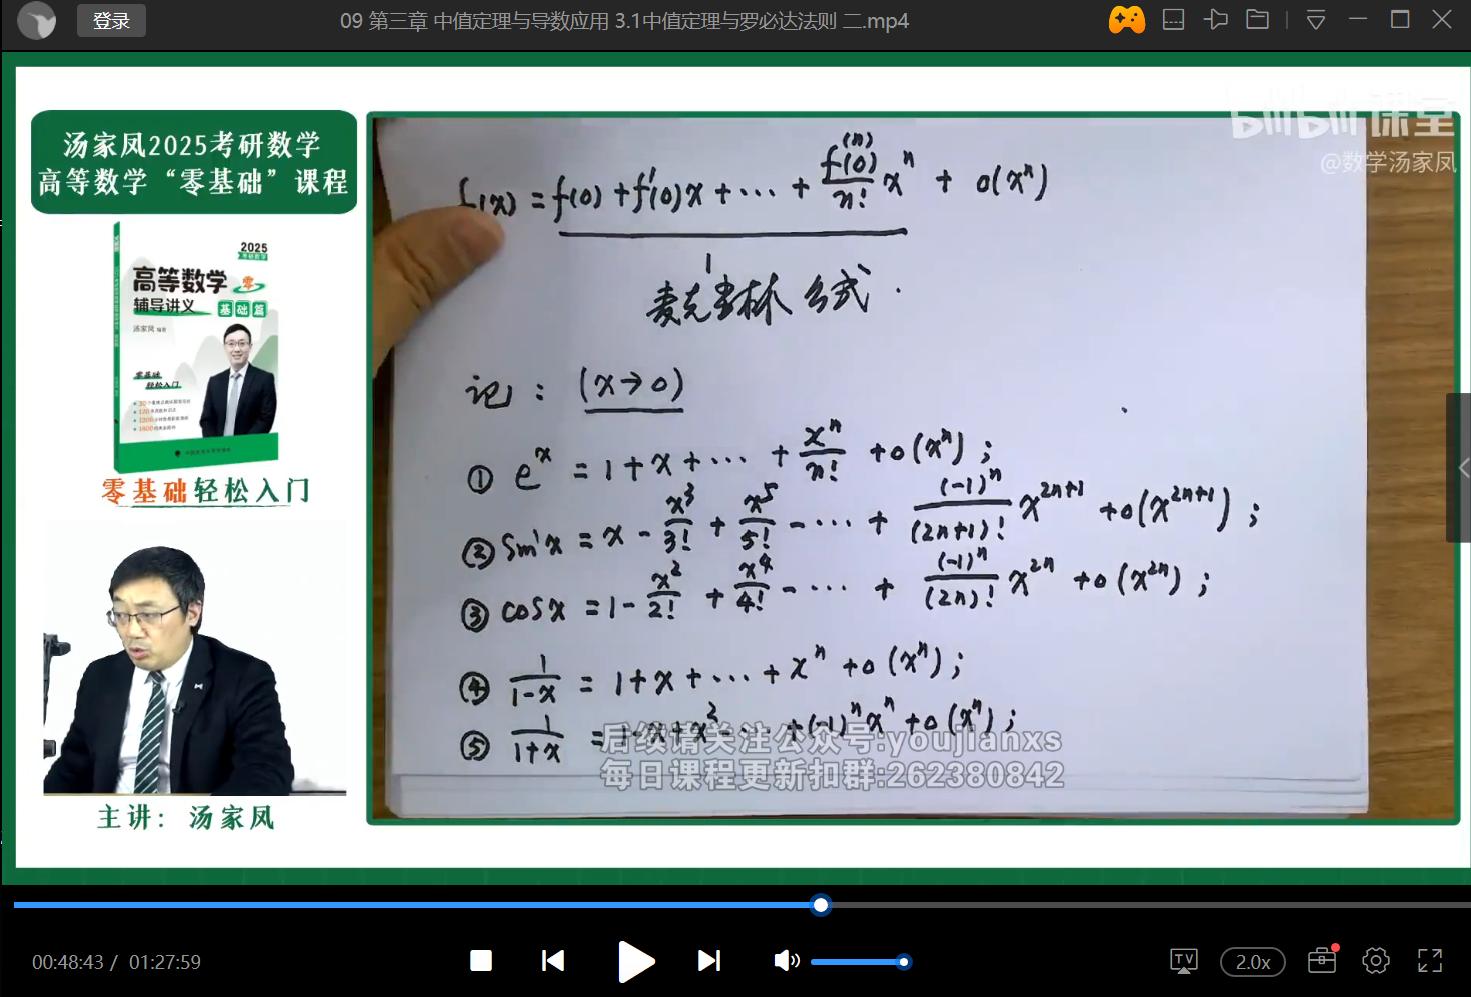 登录
09 第三章 中值定理与导数应用 3.1中值定理与罗必达法则 二.mp4
汤家凤2025考研数学
高等数学“零基础”课程
2025
高等数学 零
辅导讲义 基础篇
汤家凤 编著
零基础
轻松入门
零基础轻松入门
主讲：汤家凤
bilibili课堂
@数学汤家凤
f(x) = f(0) + f'(0)x + ⋯ + f⁽ⁿ⁾(0)/n! xⁿ + o(xⁿ)
麦克劳林公式.
记： (x→0)
① eˣ = 1 + x + ⋯ + xⁿ/n! + o(xⁿ) ;
② sin x = x - x³/3! + x⁵/5! - ⋯ + (-1)ⁿ/(2n+1)! x²ⁿ⁺¹ + o(x²ⁿ⁺¹) ;
③ cos x = 1 - x²/2! + x⁴/4! - ⋯ + (-1)ⁿ/(2n)! x²ⁿ + o(x²ⁿ) ;
④ 1/(1-x) = 1 + x + ⋯ + xⁿ + o(xⁿ) ;
⑤ 1/(1+x) = 1 - x + x² - ⋯ + (-1)ⁿxⁿ + o(xⁿ) ;
后续请关注公众号:youjianxs
每日课程更新扣群:262380842
00:48:43 / 01:27:59
TV
2.0x